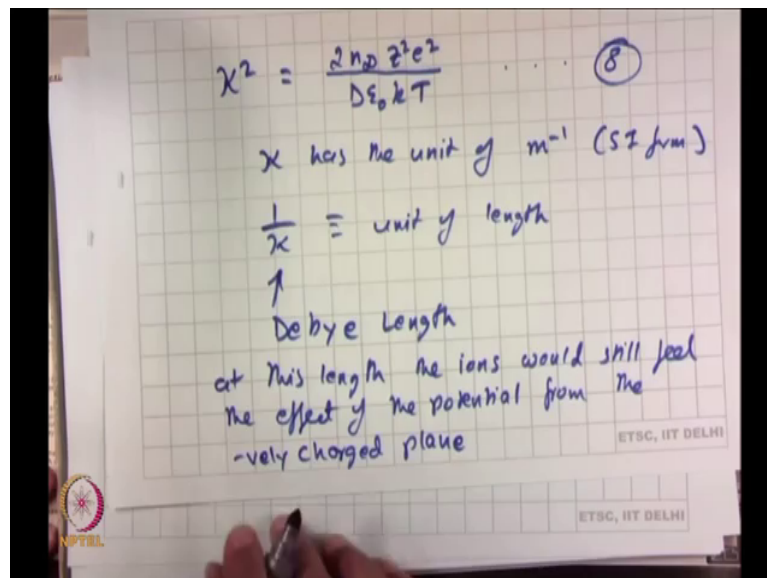 χ² = 2n∞ z²e² / Dε₀kT . . . . ⑧
χ has the unit of m⁻¹ (SI form)
1/χ ≡ unit of length
↑
Debye Length
at this length the ions would still feel
the effect of the potential from the
-vely charged plane
ETSC, IIT DELHI
ETSC, IIT DELHI
NPTEL